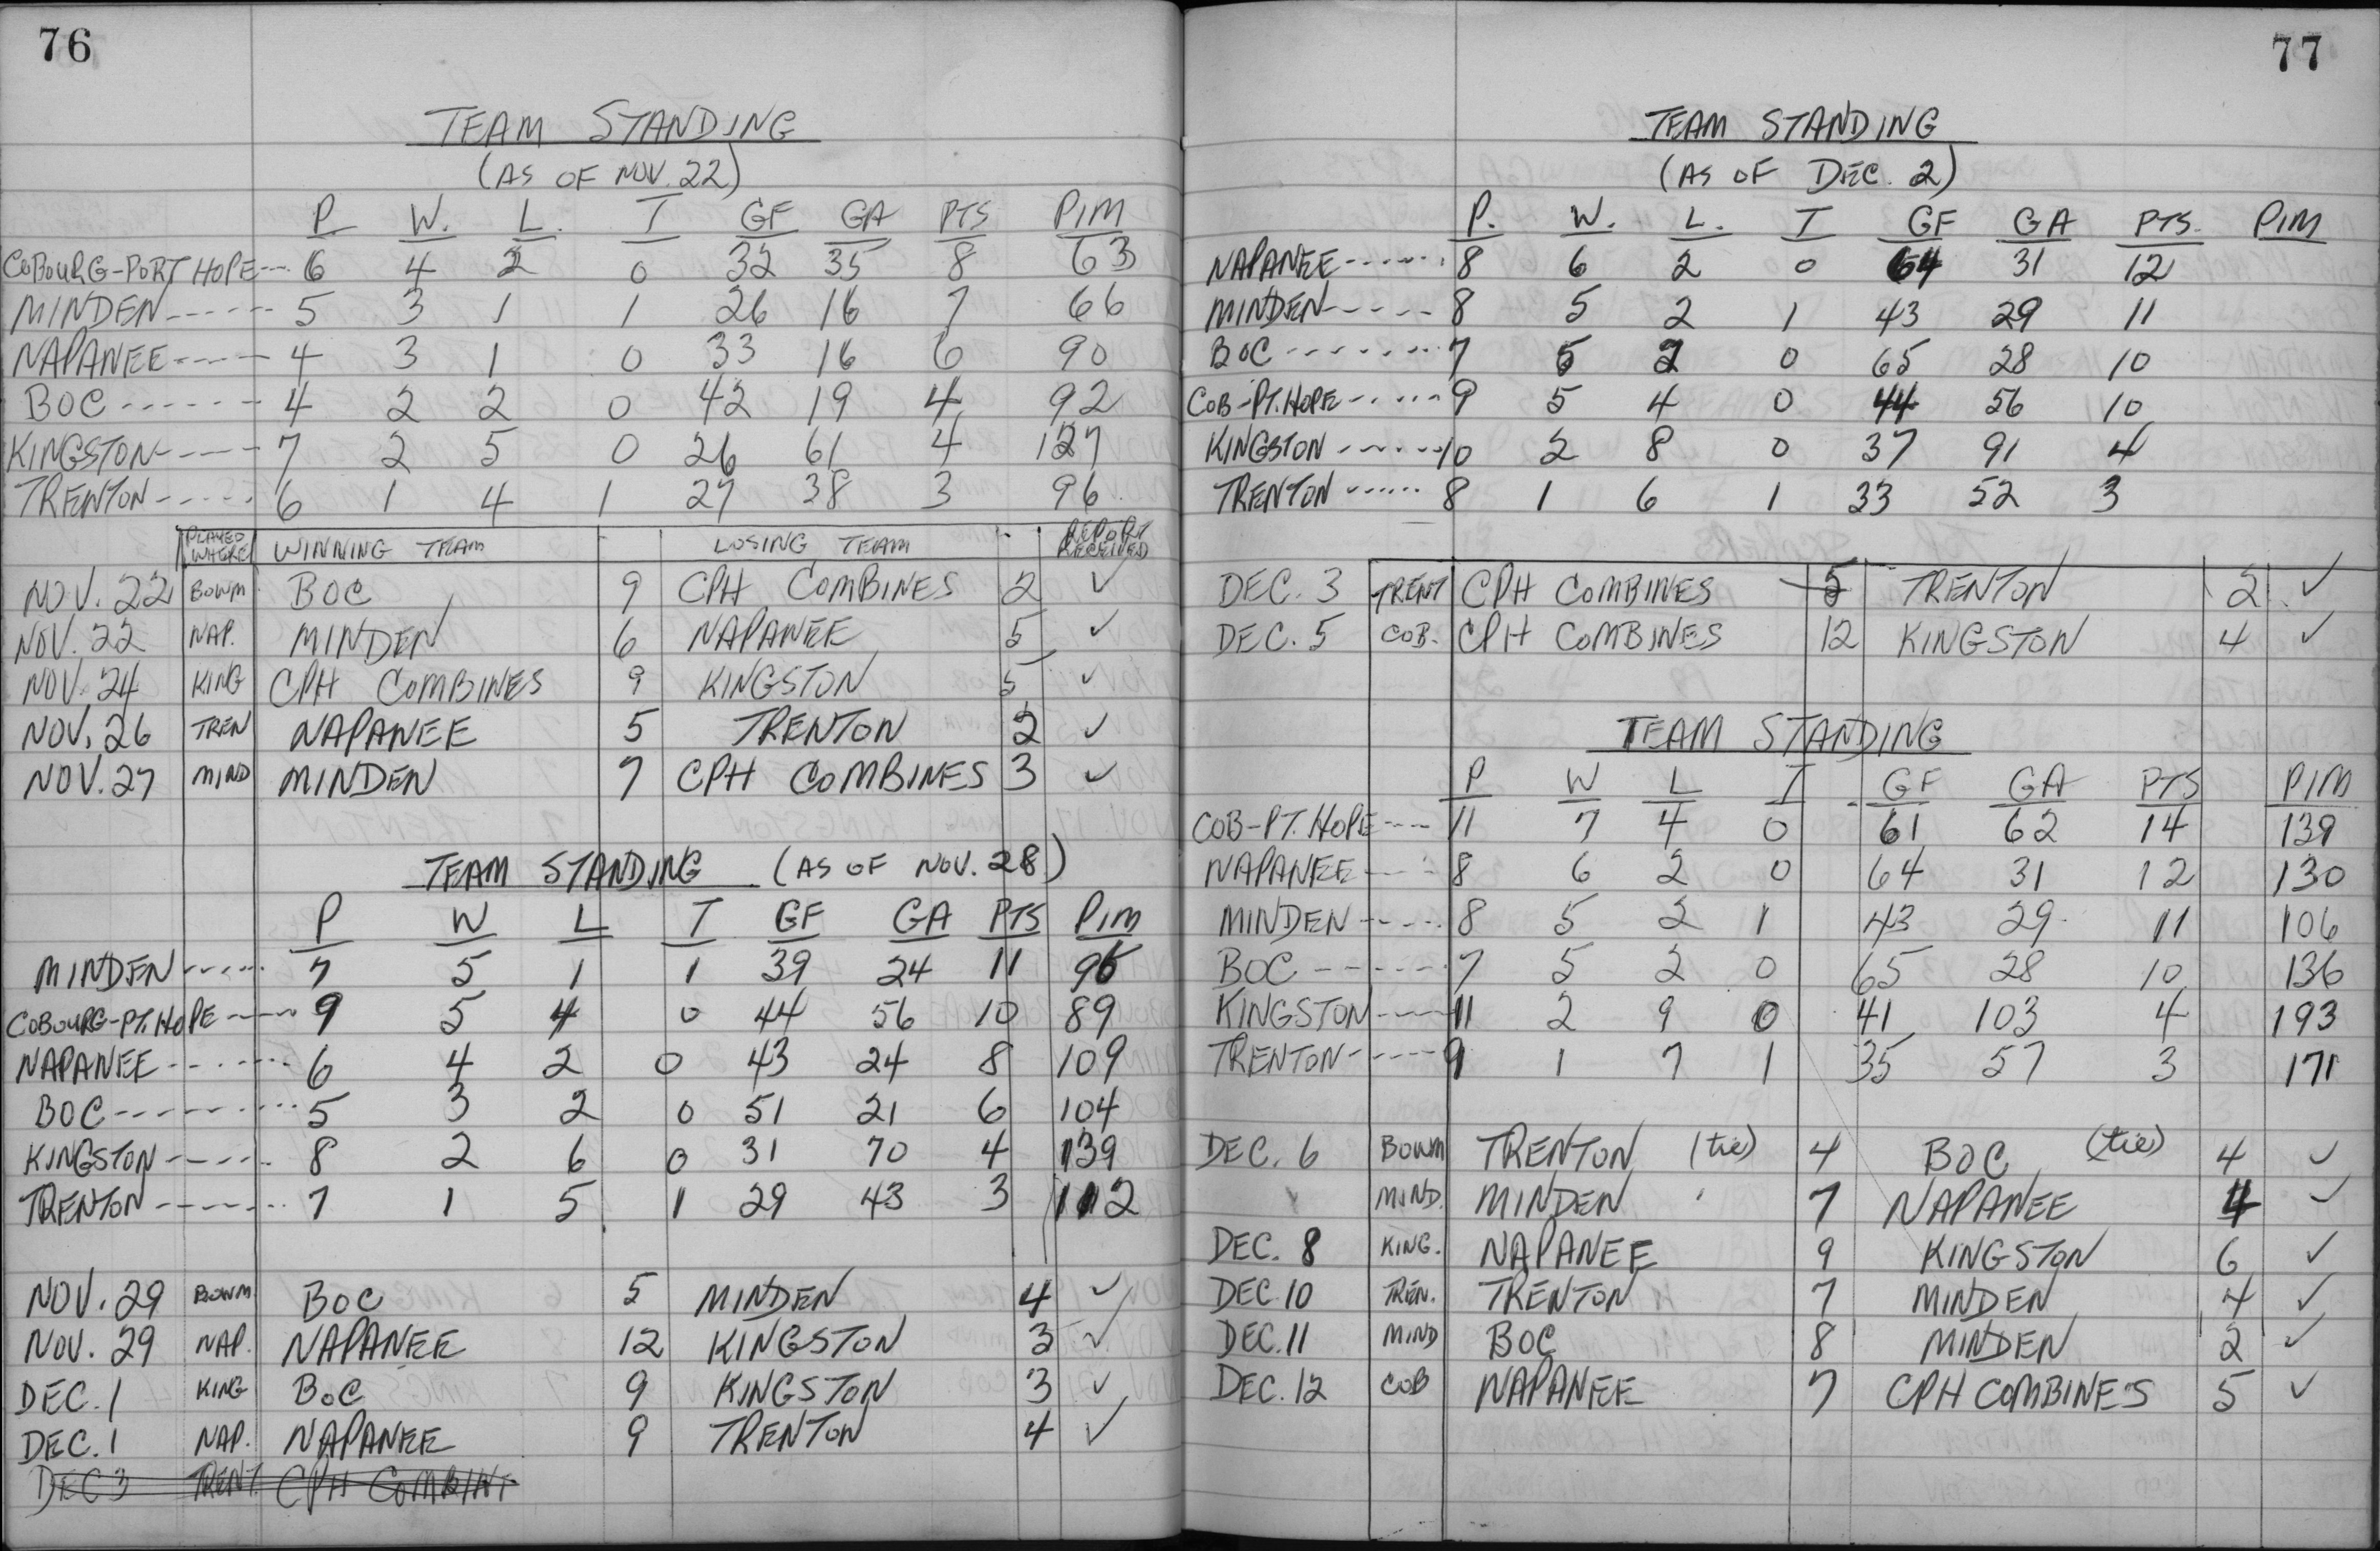 76
TEAM STANDING
(AS OF NOV. 22)
P. W. L. T GF GA PTS PIM
COBOURG-PORT HOPE--- 6 4 2 0 32 35 8 63
MINDEN------ 5 3 1 1 26 16 7 66
NAPANEE----- 4 3 1 0 33 16 6 90
BOC------- 4 2 2 0 42 19 4 92
KINGSTON----- 7 2 5 0 26 61 4 127
TRENTON----- 6 1 4 1 27 38 3 96
PLAYED WHERE WINNING TEAM LOSING TEAM REPORT RECEIVED
NOV. 22 BOWM BOC 9 CPH COMBINES 2 ✓
NOV. 22 NAP. MINDEN 6 NAPANEE 5 ✓
NOV. 24 KING CPH COMBINES 9 KINGSTON 5 ✓
NOV. 26 TREN NAPANEE 5 TRENTON 2 ✓
NOV. 27 MIND MINDEN 7 CPH COMBINES 3 ✓
TEAM STANDING (AS OF NOV. 28)
P W L T GF GA PTS PIM
MINDEN------ 7 5 1 1 39 24 11 96
COBOURG-PT. HOPE----- 9 5 4 0 44 56 10 89
NAPANEE------- 6 4 2 0 43 24 8 109
BOC--------- 5 3 2 0 51 21 6 104
KINGSTON----- 8 2 6 0 31 70 4 139
TRENTON------- 7 1 5 1 29 43 3 112
NOV. 29 BOWM BOC 5 MINDEN 4 ✓
NOV. 29 NAP. NAPANEE 12 KINGSTON 3 ✓
DEC. 1 KING BOC 9 KINGSTON 3 ✓
DEC. 1 NAP. NAPANEE 9 TRENTON 4 ✓
DEC 3 TRENT. CPH COMBINE
77
TEAM STANDING
(AS OF DEC. 2)
P. W. L. T GF GA PTS. PIM
NAPANEE------- 8 6 2 0 64 31 12
MINDEN----- 8 5 2 1 43 29 11
BOC-------- 7 5 2 0 65 28 10
COB-PT. HOPE------ 9 5 4 0 44 56 10
KINGSTON------ 10 2 8 0 37 91 4
TRENTON------ 8 1 6 1 33 52 3
DEC. 3 TRENT CPH COMBINES 5 TRENTON 2 ✓
DEC. 5 COB. CPH COMBINES 12 KINGSTON 4 ✓
TEAM STANDING
P W L T GF GA PTS PIM
COB-PT. HOPE---- 11 7 4 0 61 62 14 139
NAPANEE---- 8 6 2 0 64 31 12 130
MINDEN----- 8 5 2 1 43 29 11 106
BOC------ 7 5 2 0 65 28 10 136
KINGSTON---- 11 2 9 0 41 103 4 193
TRENTON----- 9 1 7 1 35 57 3 171
DEC. 6 BOWM TRENTON (tie) 4 BOC (tie) 4 ✓
MIND. MINDEN 7 NAPANEE 4 ✓
DEC. 8 KING. NAPANEE 9 KINGSTON 6 ✓
DEC. 10 TREN. TRENTON 7 MINDEN 4 ✓
DEC. 11 MIND BOC 8 MINDEN 2 ✓
DEC. 12 COB NAPANEE 7 CPH COMBINES 5 ✓